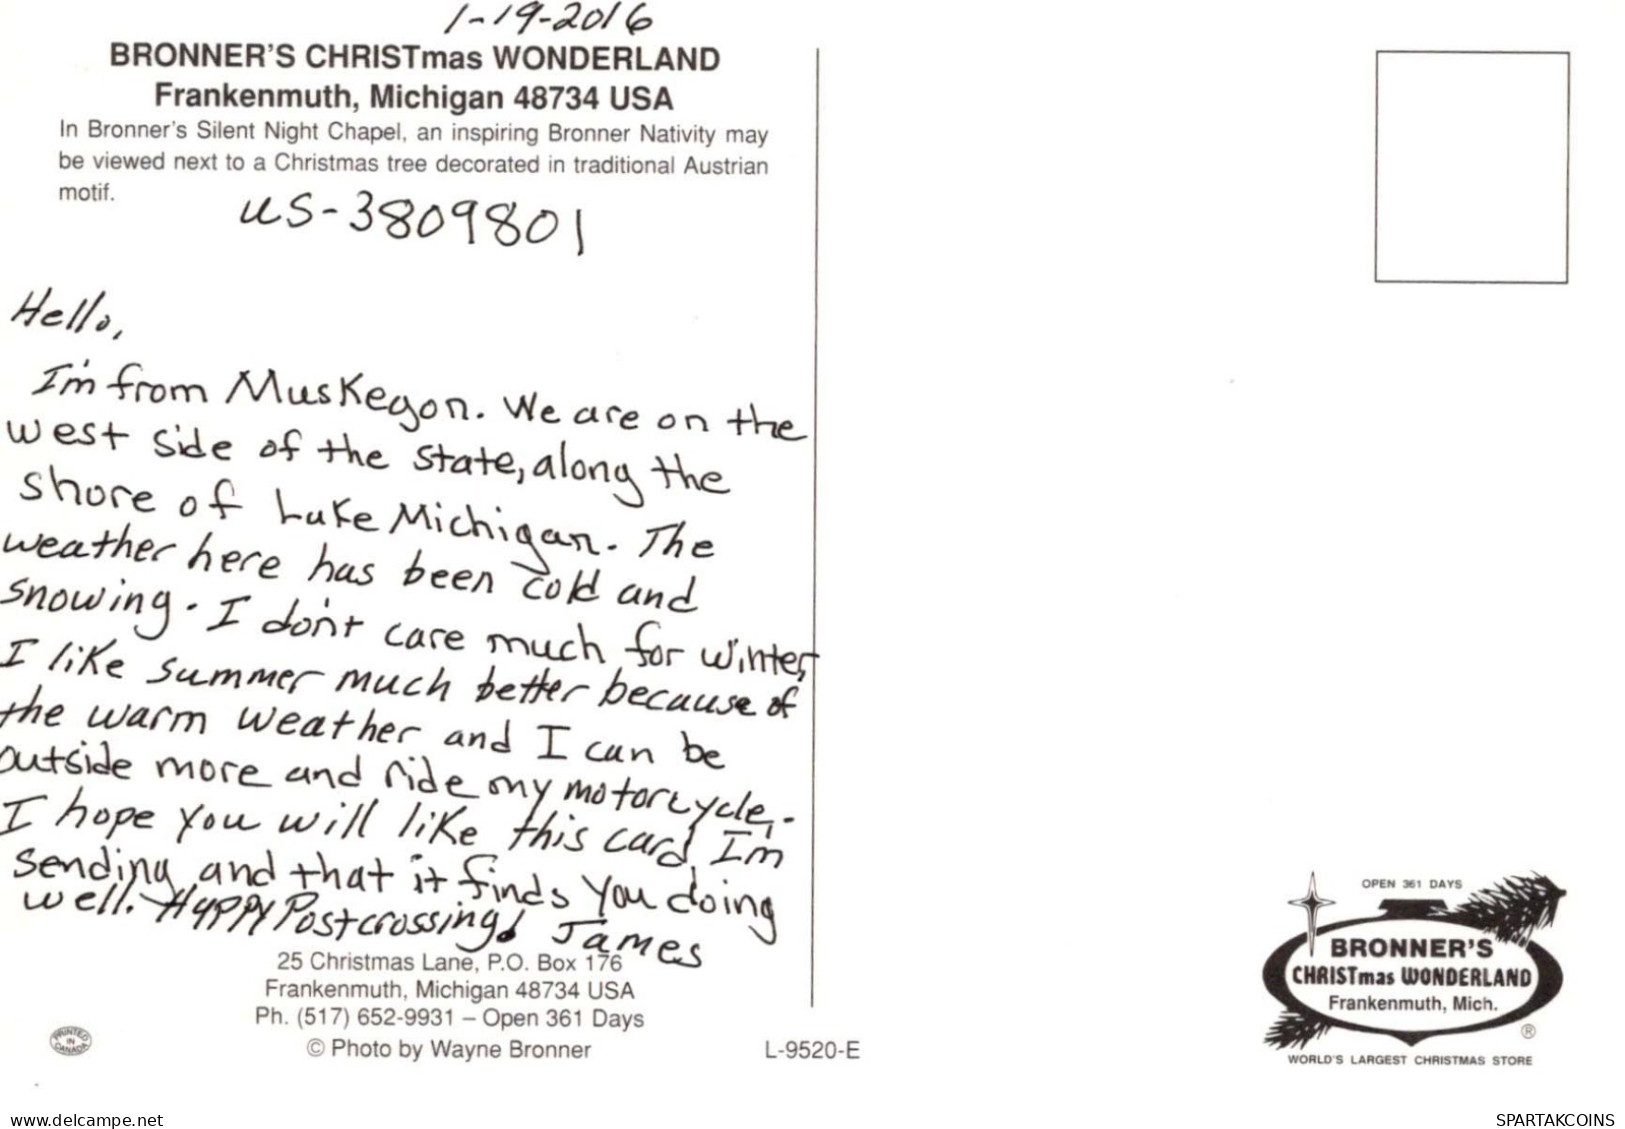 1-19-2016
BRONNER'S CHRISTmas WONDERLAND
Frankenmuth, Michigan 48734 USA
In Bronner's Silent Night Chapel, an inspiring Bronner Nativity may
be viewed next to a Christmas tree decorated in traditional Austrian
motif.
US-3809801
Hello,
I'm from Muskegon. We are on the
west side of the state, along the
shore of Lake Michigan. The
weather here has been cold and
snowing. I don't care much for winter,
I like summer much better because of
the warm weather and I can be
outside more and ride my motorcycle.
I hope you will like this card I'm
sending and that it finds you doing
well. Happy Postcrossing! James
25 Christmas Lane, P.O. Box 176
Frankenmuth, Michigan 48734 USA
Ph. (517) 652-9931 – Open 361 Days
© Photo by Wayne Bronner
L-9520-E
PRINTED
IN
CANADA
OPEN 361 DAYS
BRONNER'S
CHRISTmas WONDERLAND
Frankenmuth, Mich.
®
WORLD'S LARGEST CHRISTMAS STORE
delcampe.net
SPARTAKCOINS